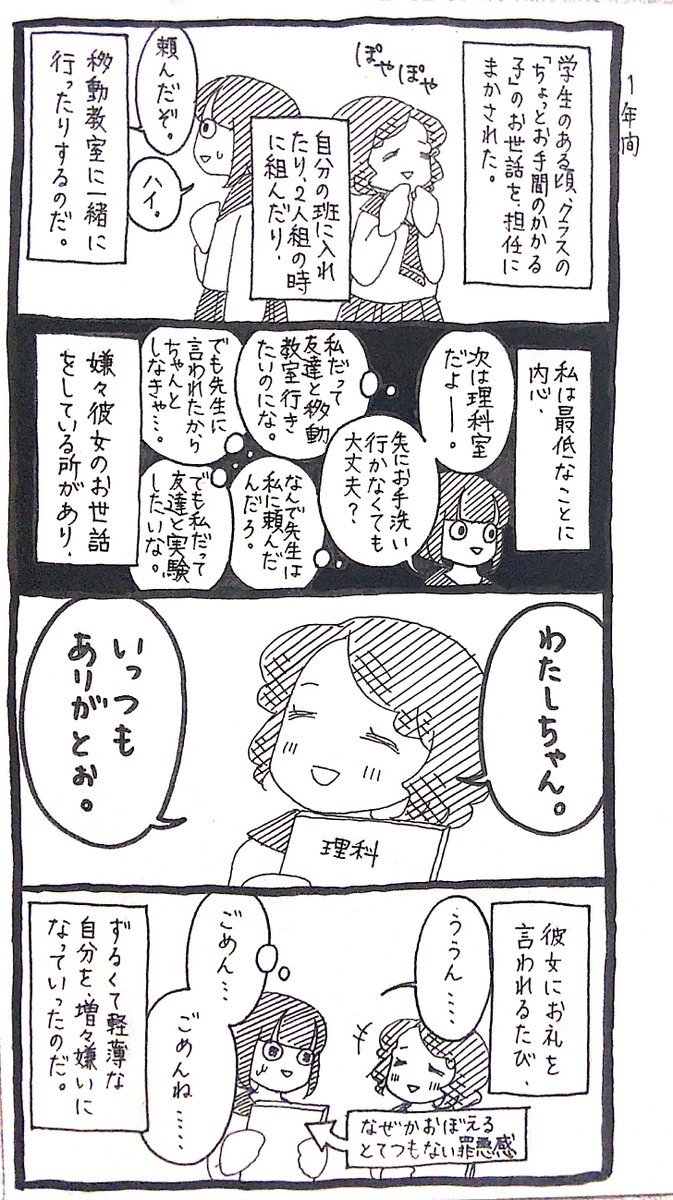 1年間
学生のある頃、クラスの
「ちょっとお手間のかかる
子」のお世話を、担任に
まかされた。
ぽやぽや
自分の班に入れ
たり、2人組の時
に組んだり、
頼んだぞ。
ハイ。
移動教室に一緒に
行ったりするのだ。
私は最低なことに
内心、
次は理科室
だよー。
先にお手洗い
行かなくても
大丈夫?
私だって
友達と移動
教室行き
たいのにな。
でも先生に
言われたから
ちゃんと
しなきゃ…。
なんで先生は
私に頼んだ
んだろ。
でも私だって
友達と実験
したいな。
嫌々彼女のお世話
をしている所があり、
わたしちゃん。
いっつも
ありがとぉ。
理科
彼女にお礼を
言われるたび、
ううん……
ごめん…
ごめんね……
なぜかおぼえる
とてつもない罪悪感
ずるくて軽薄な
自分を、増々嫌いに
なっていったのだ。